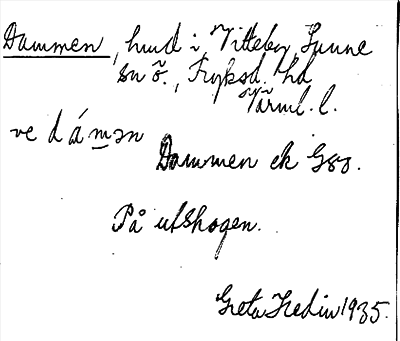 Dammen, hmd i Vitteby, Sunne
sn ö., Fryksd. hd
Värml. l.
ve dámən
Dammen ek G80.
På utskogen.
Greta Hedin 1935.